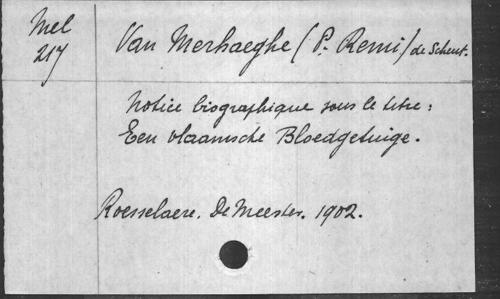 Mel
217
Van Merhaeghe (P. Remi) de Scheut.
Notice biographique sous le titre:
Een vlaamsche Bloedgetuige.
Roesselaere. De Meester. 1902.